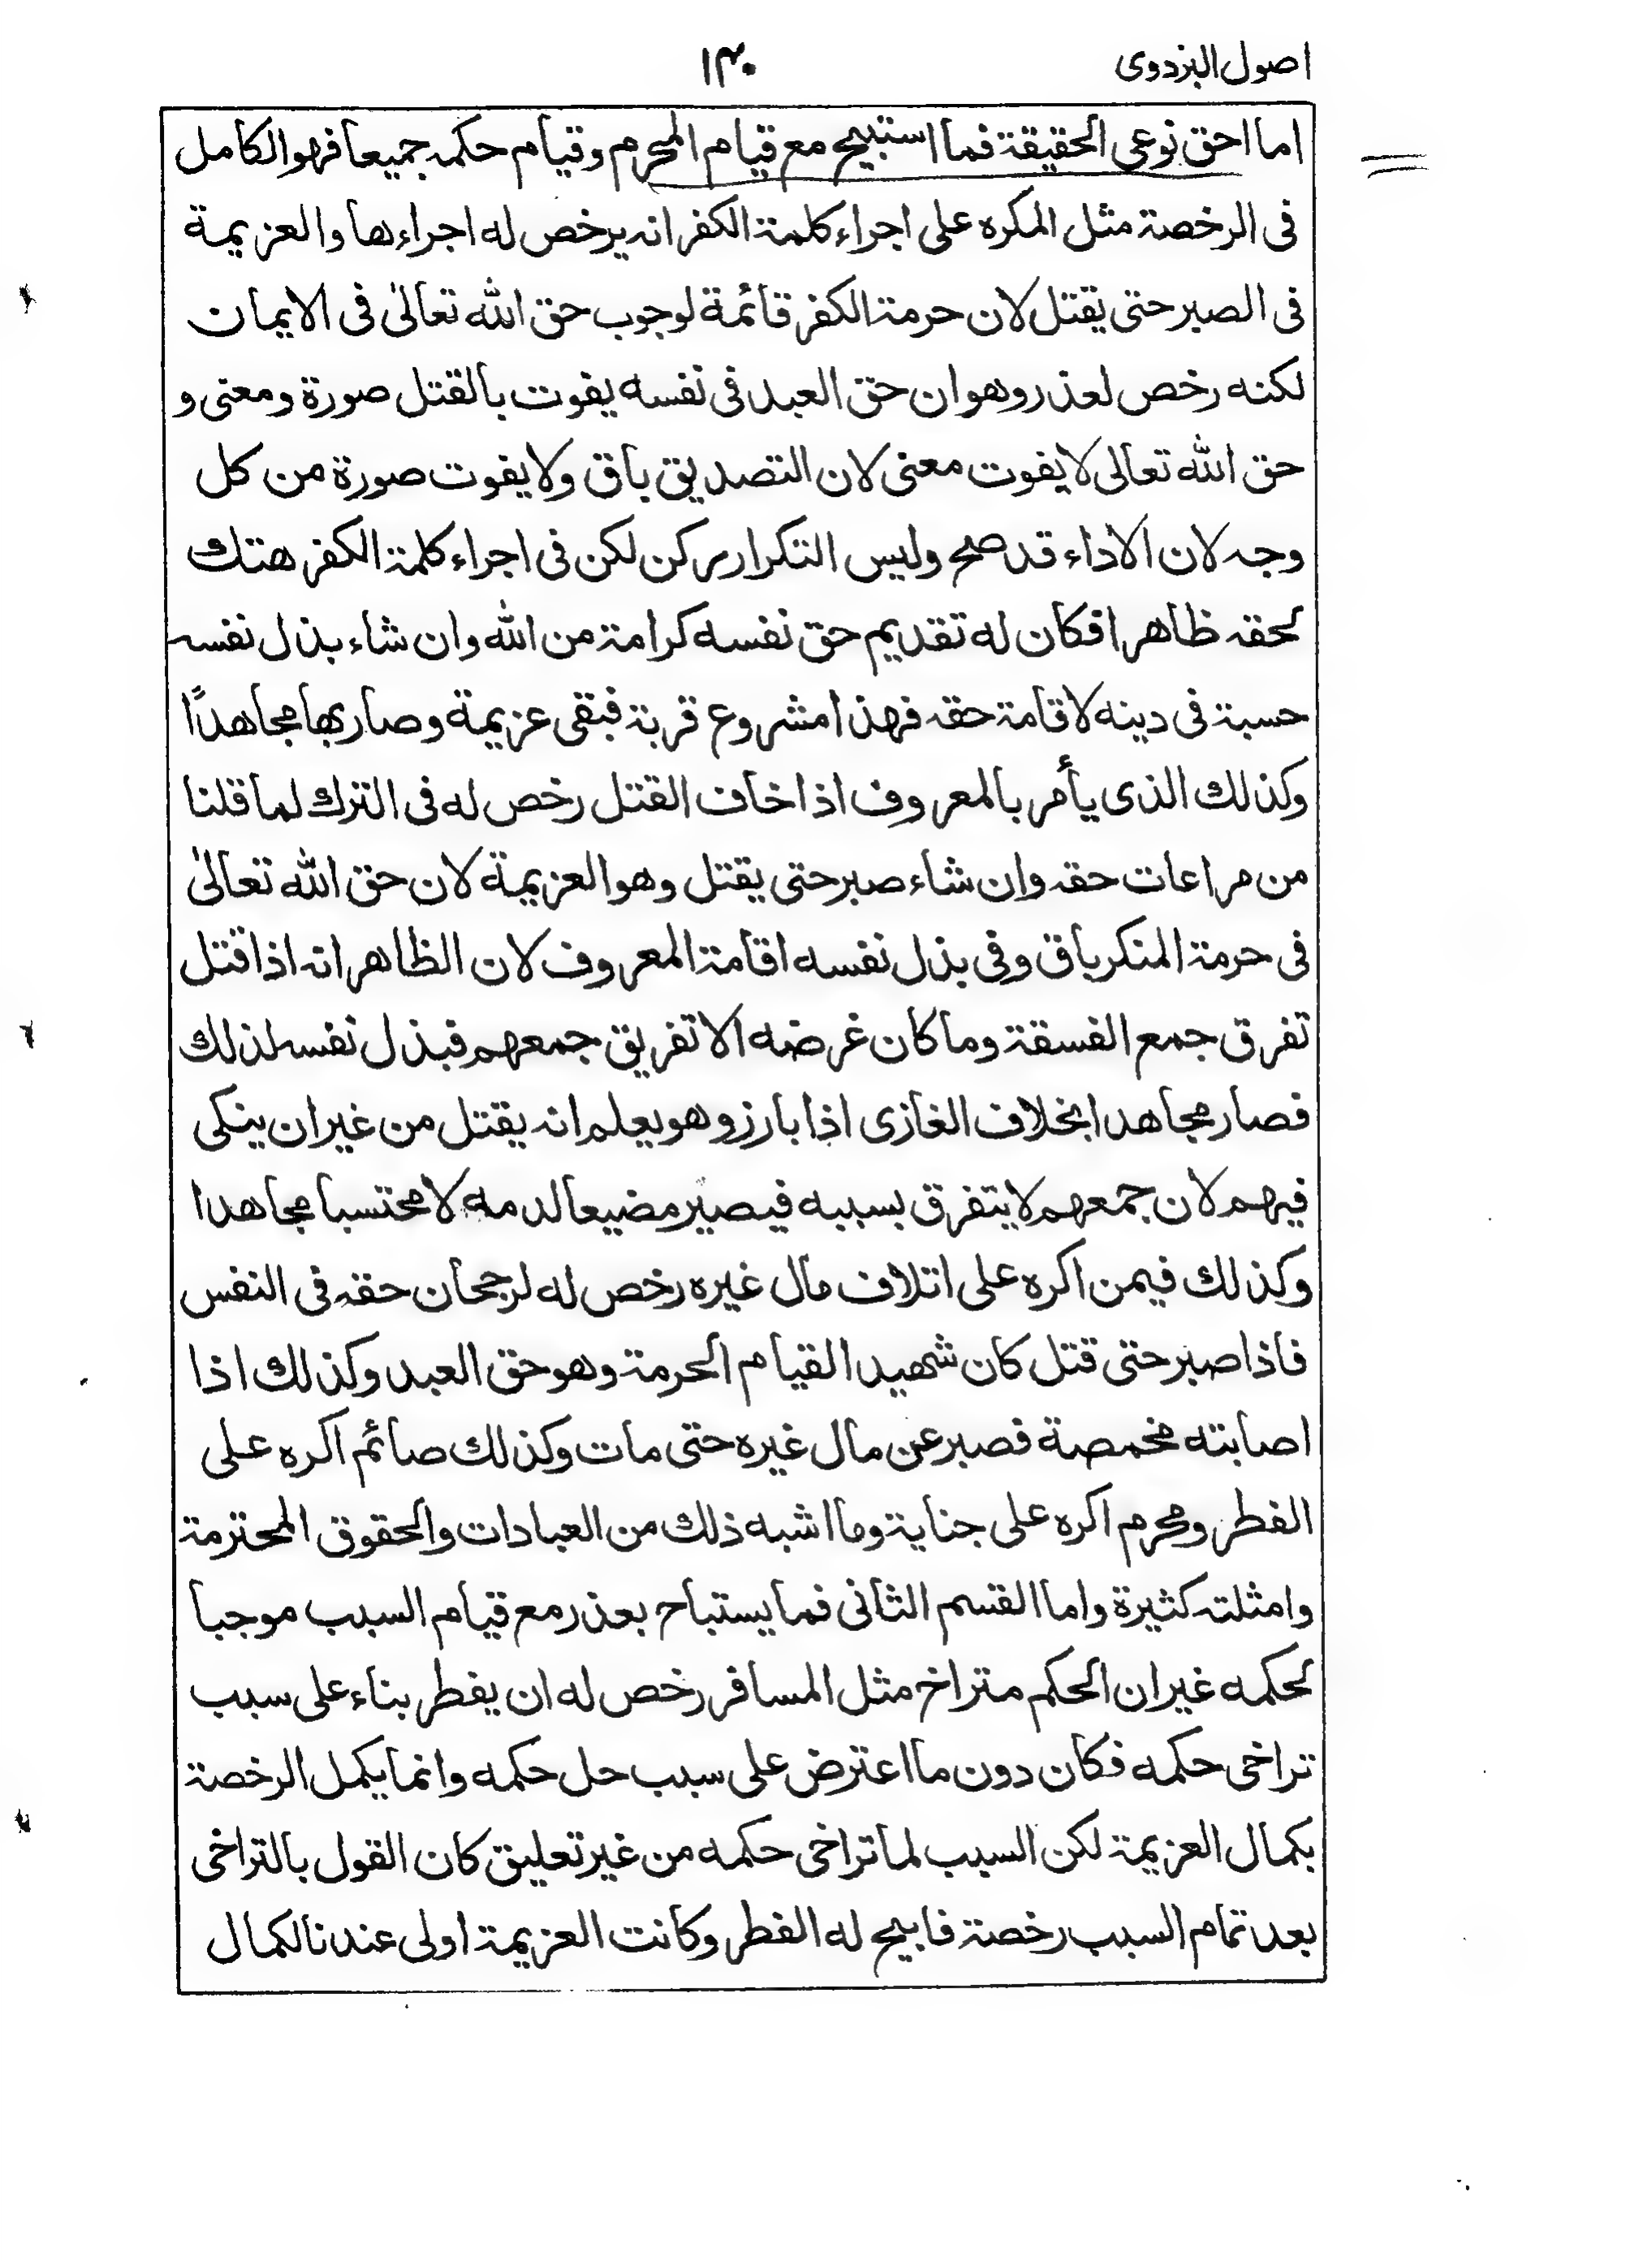 اصول البزدوی
١٤٠
اما احق نوعى الحقيقة فما استبيح مع قيام المحرم وقيام حكمه جميعا فهو الكامل
فى الرخصة مثل المكره على اجراء كلمة الكفر انه يرخص له اجراءها والعزيمة
فى الصبر حتى يقتل لان حرمة الكفر قائمة لوجوب حق الله تعالىٰ فى الايمان
لكنه رخص لعذر وهو ان حق العبد فى نفسه يفوت بالقتل صورة ومعنى و
حق الله تعالى لا يفوت معنى لان التصديق باق ولا يفوت صورة من كل
وجه لان الاداء قد صح وليس التكرار بركن لكن فى اجراء كلمة الكفر هتك
لحقه ظاهرا فكان له تقديم حق نفسه كرامة من الله وان شاء بذل نفسه
حسبة فى دينه لاقامة حقه فهذا مشروع قربة فبقى عزيمة وصار بها مجاهدًا
وكذلك الذى يأمر بالمعروف اذا خاف القتل رخص له فى الترك لما قلنا
من مراعات حقه وان شاء صبر حتى يقتل وهو العزيمة لان حق الله تعالىٰ
فى حرمة المنكر باق وفى بذل نفسه اقامة المعروف لان الظاهر انه اذا قتل
تفرق جمع الفسقة وما كان غرضه الا تفريق جمعهم فبذل نفسه لذلك
فصار مجاهدا بخلاف الغازى اذا بارز وهو يعلم انه يقتل من غير ان ينكى
فيهم لان جمعهم لا يتفرق بسببه فيصير مضيعا لدمه لا محتسبا مجاهدا
وكذلك فيمن اكره على اتلاف مال غيره رخص له لرجحان حقه فى النفس
فاذا صبر حتى قتل كان شهيدا لقيام الحرمة وهو حق العبد وكذلك اذا
اصابته مخمصة فصبر عن مال غيره حتى مات وكذلك صائم اكره على
الفطر ومحرم اكره على جناية وما اشبه ذلك من العبادات والحقوق المحترمة
وامثلته كثيرة واما القسم الثانى فما يستباح بعذر مع قيام السبب موجبا
لحكمه غير ان الحكم متراخ مثل المسافر رخص له ان يفطر بناء على سبب
تراخى حكمه فكان دون ما اعترض على سبب حل حكمه وانما يكمل الرخصة
بكمال العزيمة لكن السبب لما تراخى حكمه من غير تعليق كان القول بالتراخى
بعد تمام السبب رخصة فابيح له الفطر وكانت العزيمة اولى عندنا لكمال